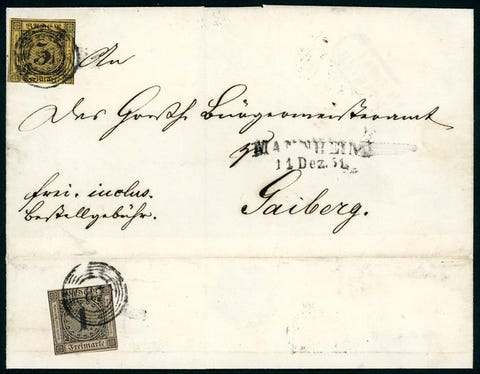 3
An
Das Großh. Bürgermeisteramt
MANNHEIM
11 Dez. 51.
frei. inclus.
Bestellgebühr.
Gaiberg.
1
Freimarke